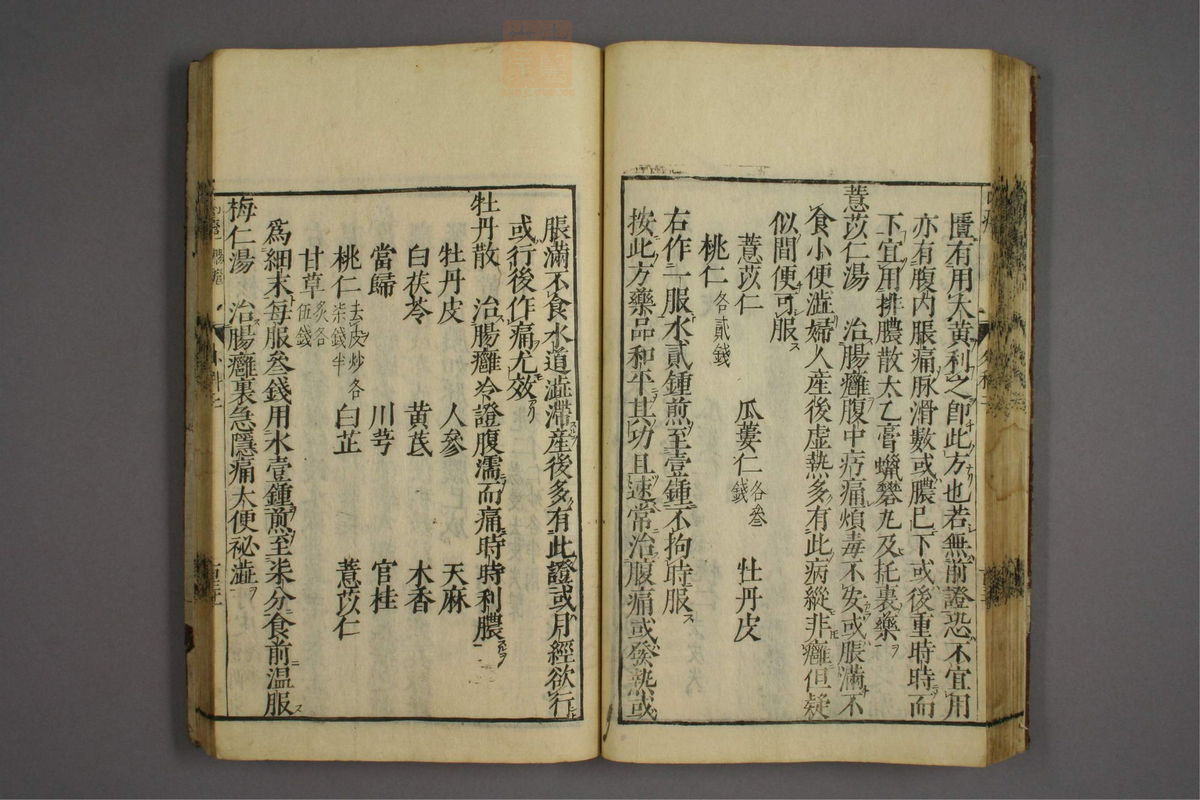 匱有用大黄利之即此方也若無前證恐不宜用
亦有腹内脹痛脉滑數或膿已下或後重時時而
下宜用排膿散太乙膏蠟礬丸及托裏藥
薏苡仁湯　治腸癰腹中㽲痛煩毒不安或脹滿不
食小便澁婦人産後虚熱多有此病縱非癰但疑
似間便可服
薏苡仁　瓜蔞仁各叁錢　牡丹皮
桃仁各貳錢
右作一服水貳鍾煎至壹鍾不拘時服
按此方藥品和平其功且速常治腹痛或發熱或
脹滿不食水道澁滯産後多有此證或月經欲行
或行後作痛尤效
牡丹散　治腸癰冷證腹濡而痛時時利膿
牡丹皮　人參　天麻
白茯苓　黄芪　木香
當歸　川芎　官桂
桃仁去皮炒各柒錢半　白芷　薏苡仁
甘草炙各伍錢
爲細末每服叁錢用水壹鍾煎至柒分食前温服
梅仁湯　治腸癰裏急隱痛大便祕澁